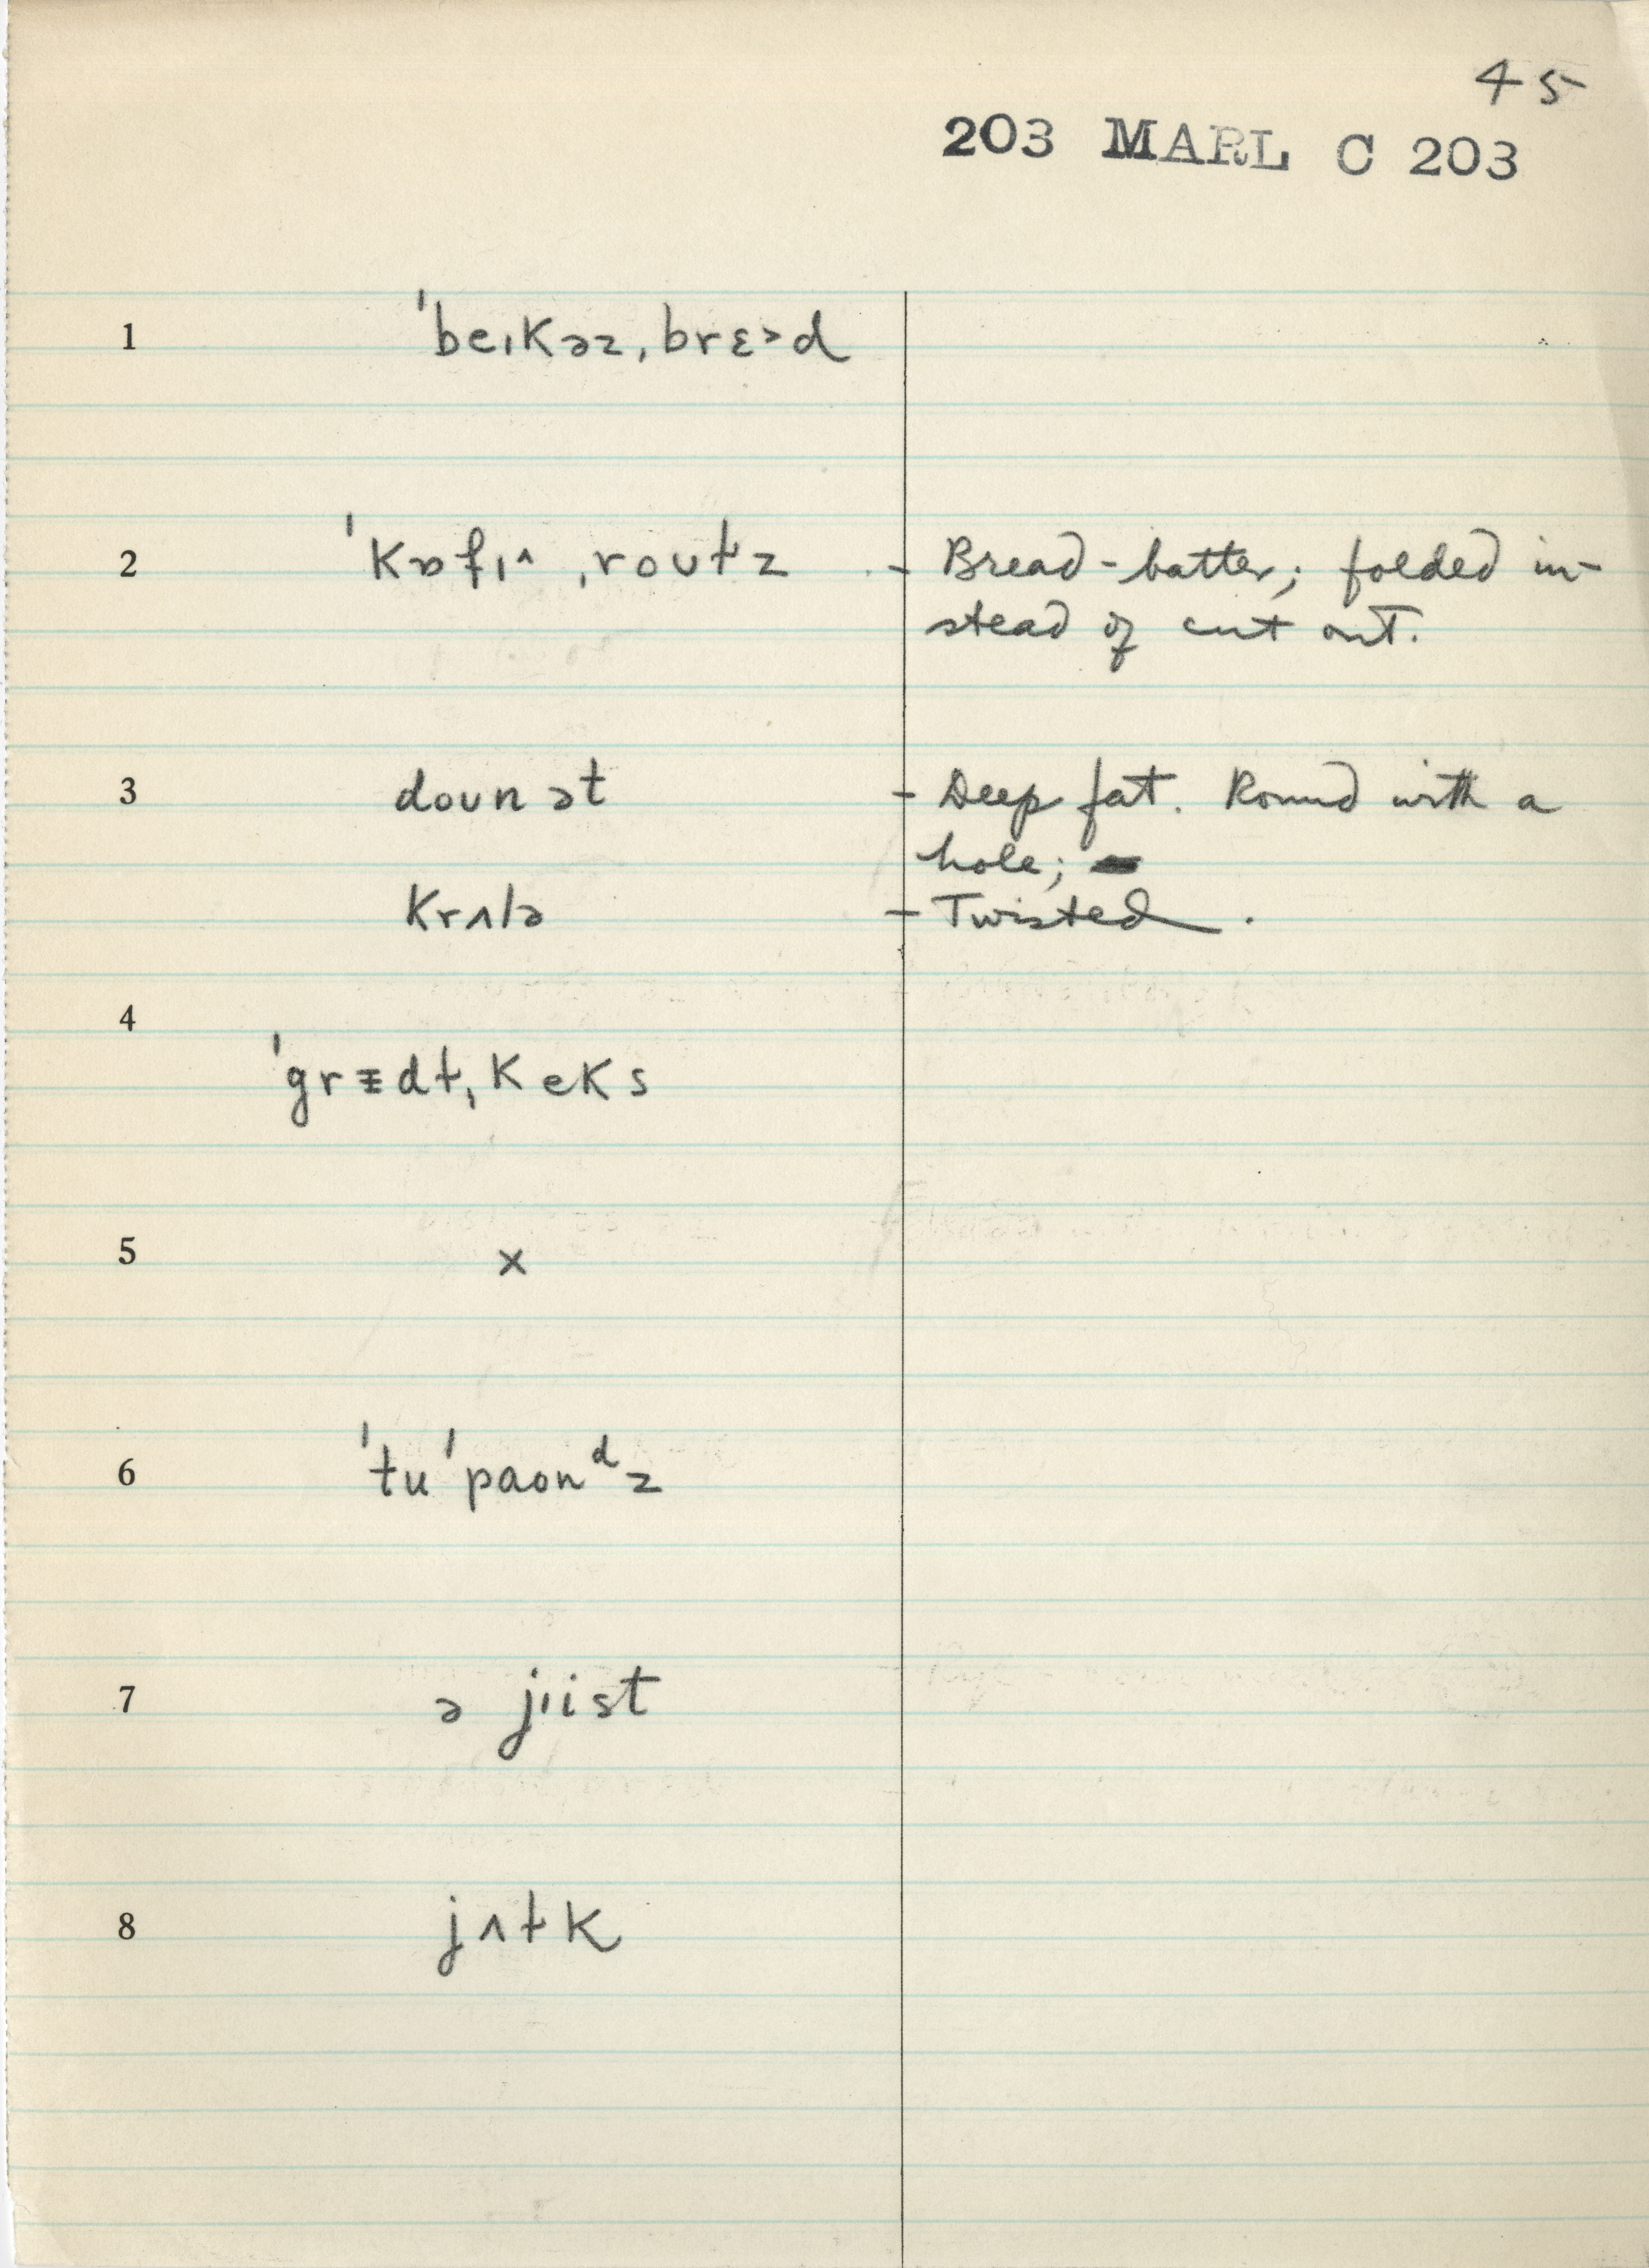 45
203 MARL C 203
1 ˈbeɪkəz ˌbrɛ˃d
2 ˈkɒfɪ^ ˌroʊɫz - Bread-batter; folded in-
stead of cut out.
3 doʊnət - Deep fat. Round with a
hole;
krʌlə - Twisted.
4
ˈgrɪdɫ ˌkeks
5 x
6 ˈtu ˈpaonᵈz
7 ə jɪist
8 jʌɫk